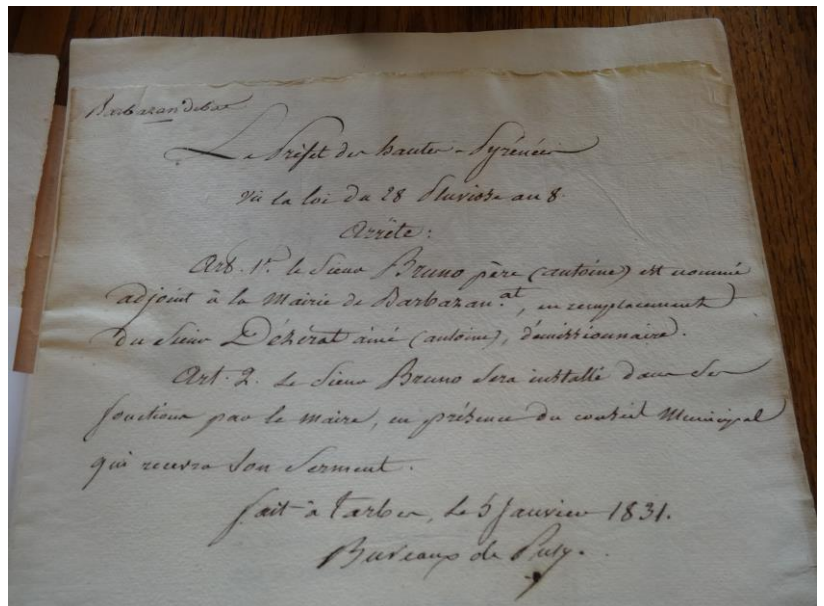 Barbazan debat
Le Préfet des hautes-Pyrénées
Vu la loi du 28 Pluviose an 8.
Arrête:
Art. 1er. le Sieur Bruno père (antoine) est nommé
adjoint à la Mairie de Barbazan-at, en remplacement
du Sieur Dézérat ainé (antoine), démissionnaire.
Art. 2. Le Sieur Bruno sera installé dans ses
fonctions par le maire, en présence du conseil Municipal
qui recevra son Serment.
fait à Tarbes, le 5 Janvier 1831.
Bureaux de Pusy.